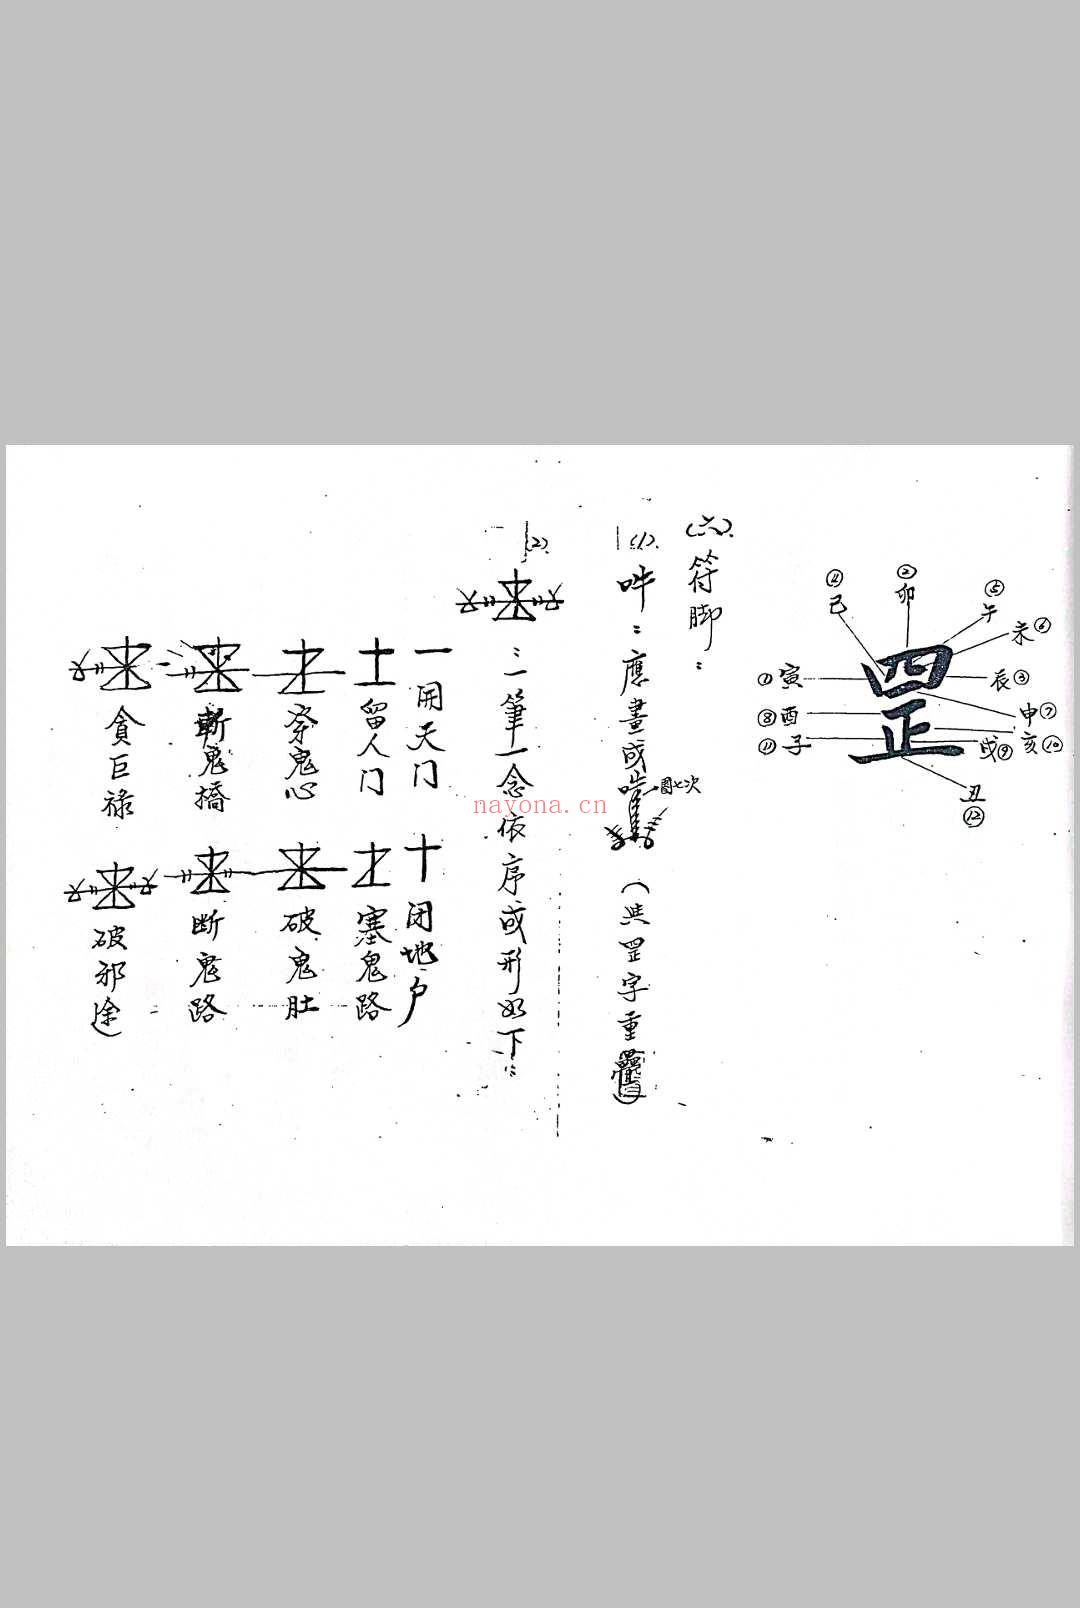 ④巳
②卯
⑤午
未⑥
①寅
辰③
申⑦
⑧酉
亥⑩
⑪子
戌⑨
丑⑫
罡
(六)、符脚：
(1)、吽：應畫成
圈七次
(共罡字重疊)
(2)、
：一筆一念依序成形如下：
一 開天门
十 闭地户
土 留人门
塞鬼路
穿鬼心
破鬼肚
斬鬼橋
断鬼路
貪巨禄
破邪途
nayona.cn